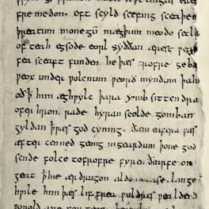 fre medon. oft scyld scefing sceaþe
þreatum monegū mægþum meodo setla
of teah egsode eorl syððan ærest wear
fea sceaft funden he þæs frofre geba
weox under wolcnum weorð myndum þah
oð ꝥ him æghwylc þara ymb sittendra
ofer hron rade hyran scolde gomban
gyldan ꝥ wæs god cyning. ðæm eafera wæs
æfter cenned geong ingeardum þone god
sende folce tofrofre fyren ðearfe on
geat ꝥ hie ær drugon aldor ase. lange
hwile him þæs lif frea wuldres wealdend